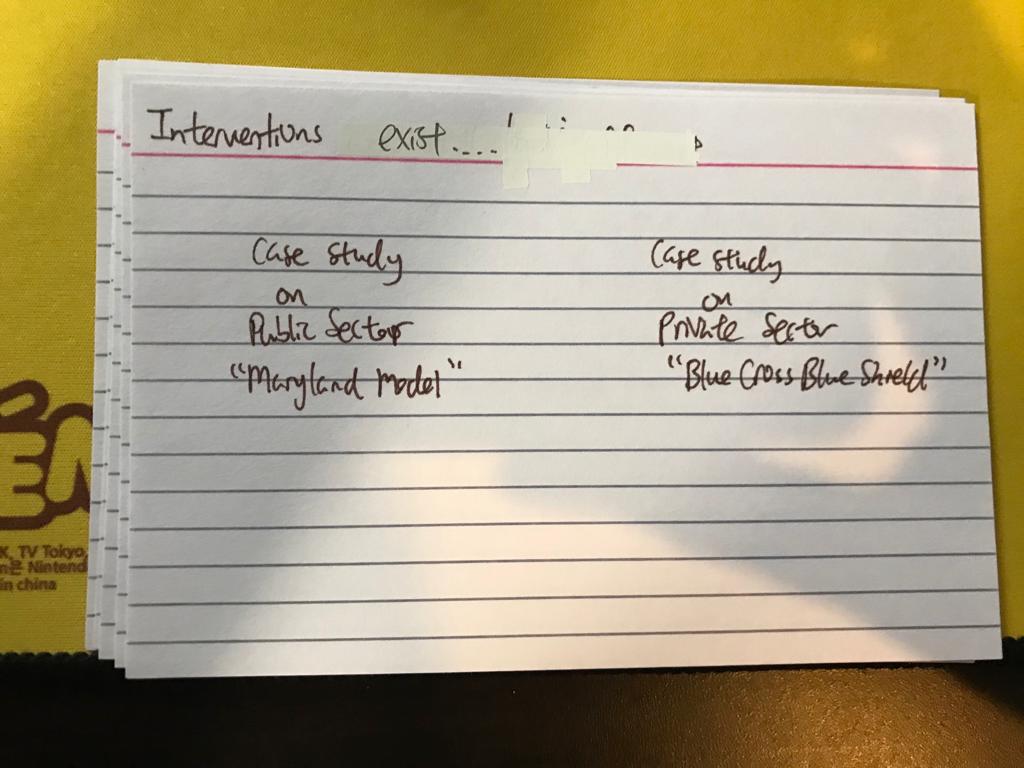 Interventions exist....
Case study
on
Public Sector
"Maryland Model"
Case study
on
Private Sector
"Blue Cross Blue Shield"
EN
K, TV Tokyo,
n은 Nintend
in china